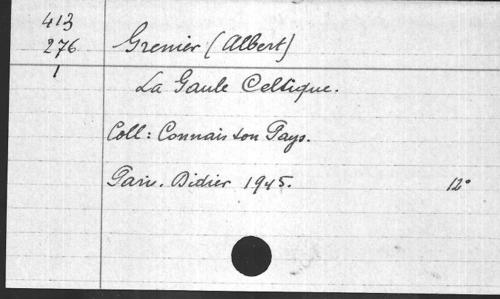 413
276 Grenier (Albert)
1 La Gaule Celtique.
Coll: Connais ton Pays.
Paris. Didier 1945. 12°